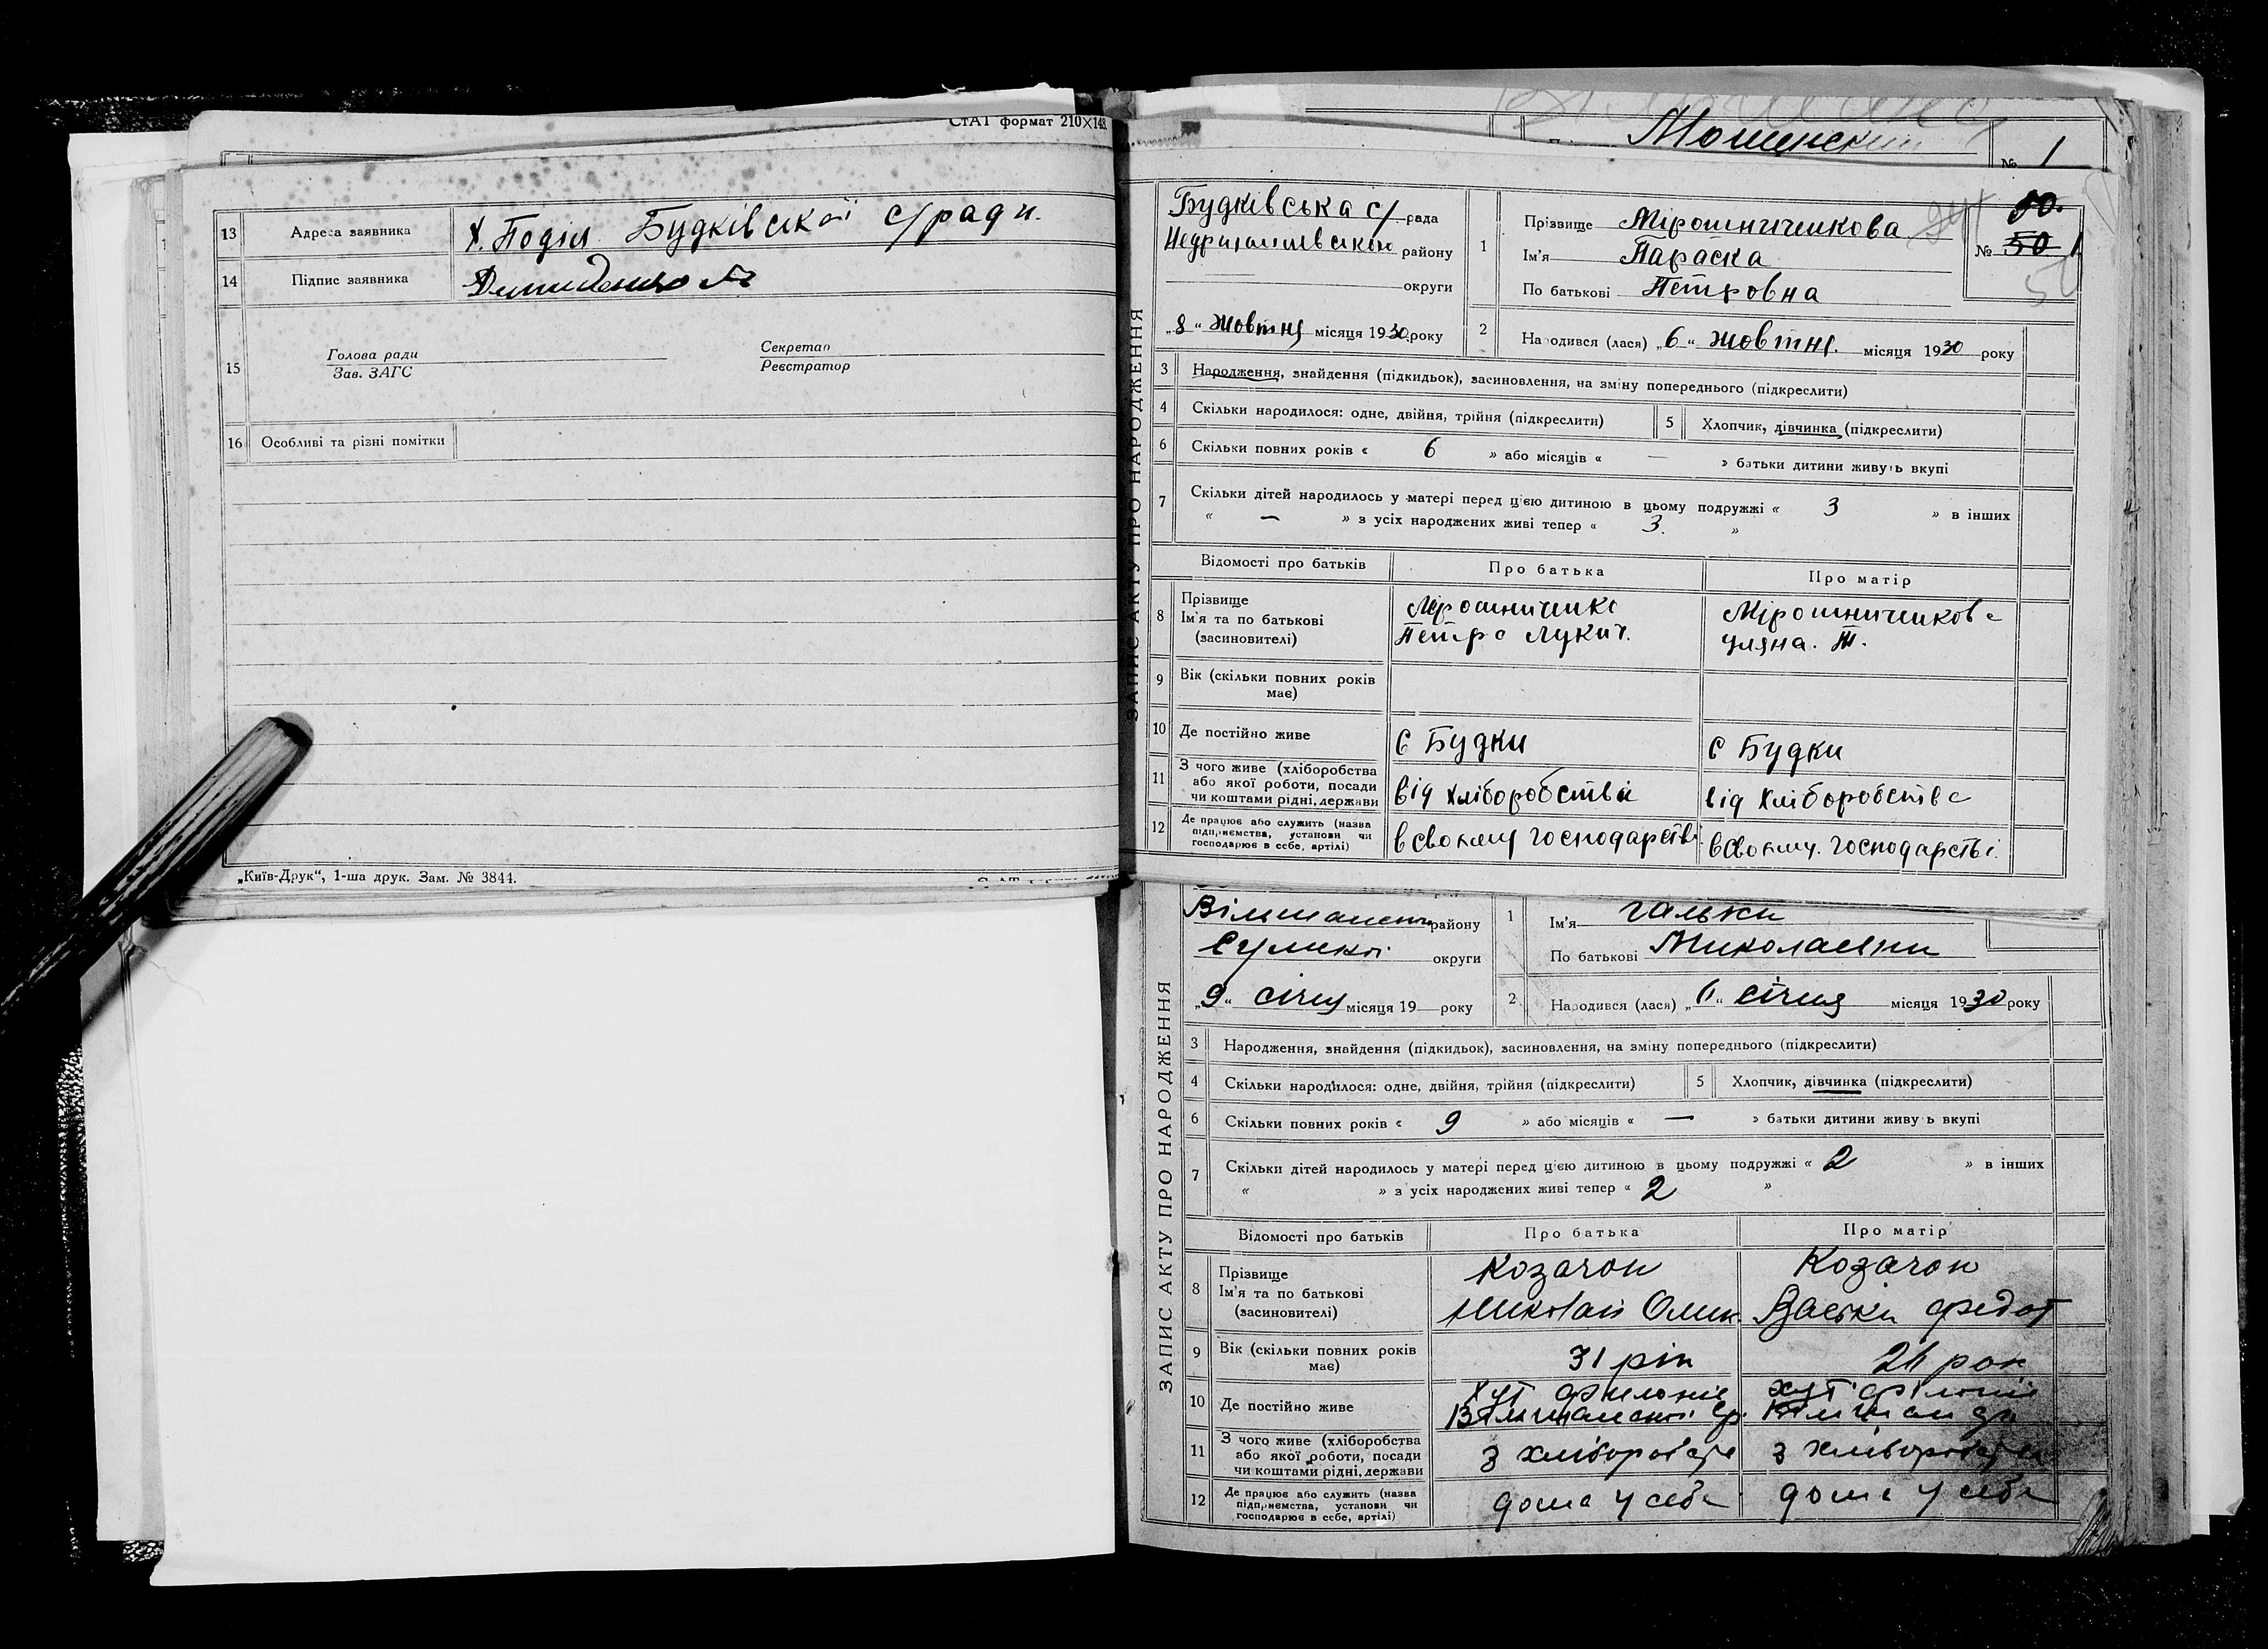 СТАТ формат 210×148
13 Адреса заявника Х. Поділ Будківської с/ради.
14 Підпис заявника
15 Голова ради Секретар
Зав. ЗАГС Реєстратор
16 Особливі та різні помітки
„Київ-Друк“, 1-ша друк. Зам. № 3844.
№ 1
ЗАПИС АКТУ ПРО НАРОДЖЕННЯ
Будківська с/ рада
району
округи
„8“ жовтня місяця 1930 року
1 Прізвище Мірошниченкова
Ім'я Параска
По батькові Петровна
№ 50 1
50.
2 Народився (лася) „6“ жовтня. місяця 1930 року
3 Народження, знайдення (підкидьок), засиновлення, на зміну попереднього (підкреслити)
4 Скільки народилося: одне, двійня, трійня (підкреслити) 5 Хлопчик, дівчинка (підкреслити)
6 Скільки повних років « 6 » або місяців « — » батьки дитини живуть вкупі
7 Скільки дітей народилось у матері перед цією дитиною в цьому подружжі « 3 » в інших
« — » з усіх народжених живі тепер « 3. »
Відомості про батьків Про батька Про матір
8 Прізвище Мірошниченко Мірошниченкова
Ім'я та по батькові Петро Лукич. Уляна. Т.
(засиновителі)
9 Вік (скільки повних років
має)
10 Де постійно живе с Будки с Будки
11 З чого живе (хліборобства
або якої роботи, посади
чи коштами рідні, держави від хліборобства від хліборобства
12 Де працює або служить (назва
підприємства, установи чи
господарює в себе, артілі) в своєму господарстві. в своєму. господарстві.
ЗАПИС АКТУ ПРО НАРОДЖЕННЯ
району
Сумської округи
„9“ січня місяця 19 року
1 Ім'я Гальки
По батькові Миколаевни
2 Народився (лася) січня місяця 1930 року
3 Народження, знайдення (підкидьок), засиновлення, на зміну попереднього (підкреслити)
4 Скільки народилося: одне, двійня, трійня (підкреслити) 5 Хлопчик, дівчинка (підкреслити)
6 Скільки повних років « 9 » або місяців « — » батьки дитини живуть вкупі
7 Скільки дітей народилось у матері перед цією дитиною в цьому подружжі « 2 » в інших
« » з усіх народжених живі тепер « 2 »
Відомості про батьків Про батька Про матір
8 Прізвище Козачок Козачок
Ім'я та по батькові Николай Федот
(засиновителі)
9 Вік (скільки повних років 31 рік
має)
10 Де постійно живе хут хут
11 З чого живе (хліборобства
або якої роботи, посади
чи коштами рідні, держави з з
12 Де працює або служить (назва
підприємства, установи чи
господарює в себе, артілі) дома у себе дома у себе